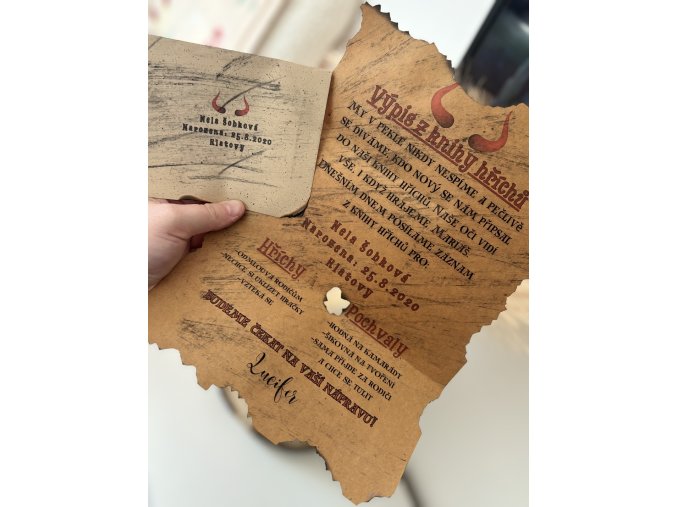 Nela Šobková
Narozena: 25.8.2020
Klatovy
Výpis z knihy hříchů
MY V PEKLE NIKDY NESPÍME A PEČLIVĚ
SE DÍVÁME, KDO NOVÝ SE NÁM PŘIPSAL
DO NAŠÍ KNIHY HŘÍCHŮ. NAŠE OČI VIDÍ
VŠE, I KDYŽ HRAJEME MARIÁŠ.
DNEŠNÍM DNEM POSÍLÁME ZÁZNAM
Z KNIHY HŘÍCHŮ PRO:
Nela Šobková
Narozena: 25.8.2020
Klatovy
Hříchy
-ODMLOUVÁ RODIČŮM
-NECHCE SI UKLÍZET HRAČKY
-VZTEKÁ SE
Pochvaly
-HODNÁ NA KAMARÁDY
-ŠIKOVNÁ NA TVOŘENÍ
-SAMA PŘIJDE ZA RODIČI
A CHCE SE TULIT
BUDEME ČEKAT NA VAŠI NÁPRAVU!
Lucifer